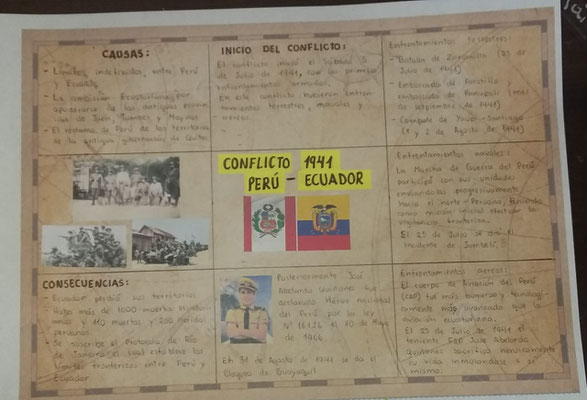 CAUSAS:
- Límites indefinidos entre Perú
y Ecuador
- La ambición Ecuatoriana por
apoderarse de las antiguas
de Jaén, Tumbes y Maynas
- El reclamo de Perú de los territorios
de la antigua gobernación de Quito
INICIO DEL CONFLICTO:
El conflicto inició el Sábado 5
de Julio de 1941, con los primeros
enfrentamientos armados.
En este conflicto hubieron enfren-
tamientos terrestres, navales y
aéreos.
Enfrentamientos terrestres:
- Batalla de Zarumilla (23 de
Julio de 1941)
- Emboscada de Porotillo
emboscada de Panupali (
de septiembre de 1941)
- Campaña de Yaupi-Santiago
(1 y 2 de Agosto de 1941)
CONFLICTO 1941
PERÚ - ECUADOR
Enfrentamientos navales:
La Marina de Guerra del Perú
participó con sus unidades
enviándolas progresivamente
hacia el norte Peruano, teniendo
como misión inicial efectuar la
vigilancia fronteriza.
El 25 de Julio se dió el
incidente de Jambelí.
CONSECUENCIAS:
- Ecuador perdió sus territorios
- Hubo más de 1000 muertes
y 110 muertos y 250 heridos
peruanos.
- Se suscribe el Protocolo de Río
de Janeiro el cual establece los
límites fronterizos entre Perú y
Ecuador
Posteriormente José
Abelardo Quiñones fue
declarado Héroe nacional
del Perú por la ley
N° 16126 el 10 de Mayo
de 1966
El 31 de Agosto de 1941 se da el
Bloqueo de Guayaquil
Enfrentamientos aéreos:
El cuerpo de Aviación del Perú
(CAP) fue más numeroso y tecnológi-
camente más avanzado que la
aviación ecuatoriana.
El 23 de Julio de 1941 el
teniente FAP José Abelardo
Quiñones sacrificó heroicamente
su vida inmolándose a sí
mismo.